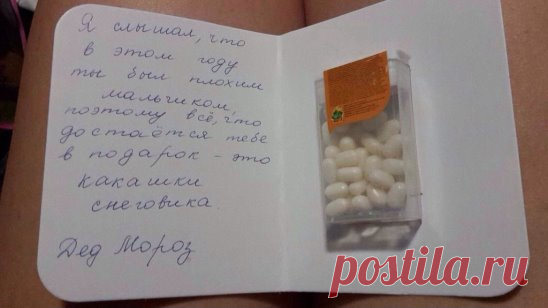 Я слышал, что
в этом году
ты был плохим
мальчиком,
поэтому всё, что
достаётся тебе
в подарок - это
какашки
снеговика.
Дед Мороз
postila.ru